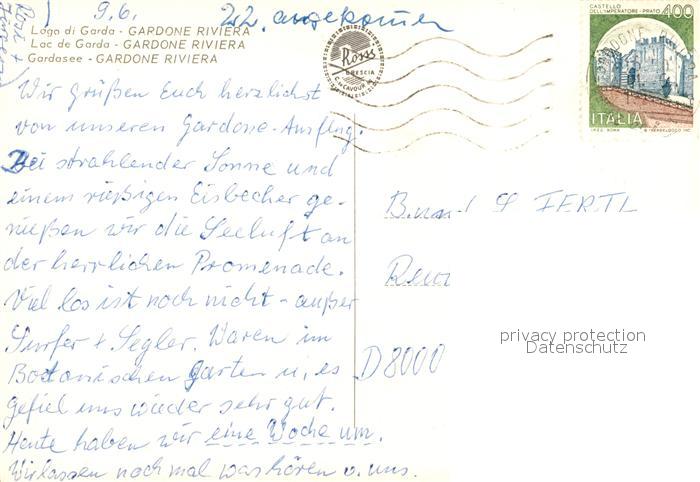 9.6. 22. angekommen
Lago di Garda - GARDONE RIVIERA
Lac de Garda - GARDONE RIVIERA
Gardasee - GARDONE RIVIERA
Wir grüßen Euch herzlichst
von unserem Gardone-Ausflug.
Bei strahlender Sonne und
einem riesigen Eisbecher ge-
nießen wir die Seeluft an
der herrlichen Promenade.
Viel los ist noch nicht - außer
Surfer + Segler. Waren im
Botanischen Garten u. es
gefiel uns wieder sehr gut.
Heute haben wir eine Woche um.
Wir lassen noch mal was hören v. uns.
Rossi
BRESCIA
C. CAVOUR
CASTELLO
DELL'IMPERATORE - PRATO 400
ITALIA
FERTL
D 8000
privacy protection
Datenschutz